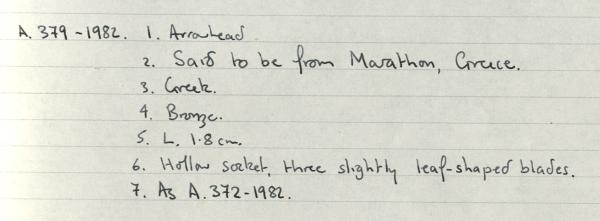 A. 379-1982. 1. Arrowhead
2. Said to be from Marathon, Greece.
3. Greek.
4. Bronze.
5. L. 1·8 cm.
6. Hollow socket, three slightly leaf-shaped blades.
7. As A. 372-1982.